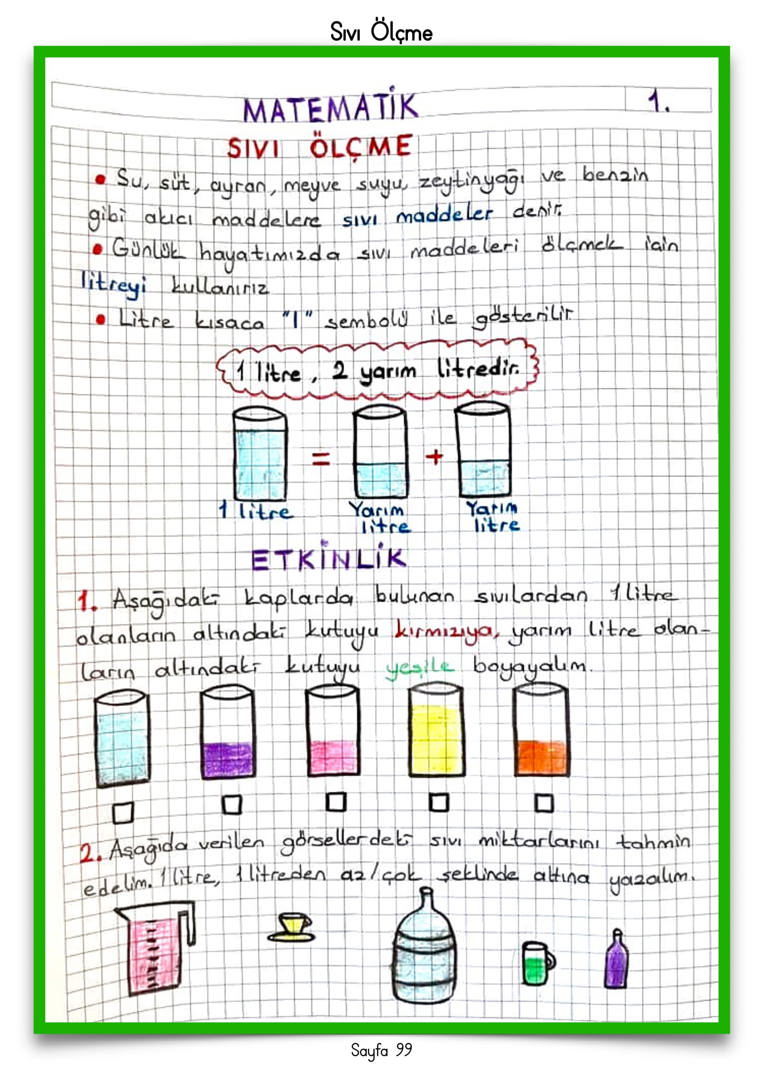 Sıvı Ölçme
MATEMATİK
1.
SIVI ÖLÇME
• Su, süt, ayran, meyve suyu, zeytinyağı ve benzin
gibi akıcı maddelere sıvı maddeler denir.
• Günlük hayatımızda sıvı maddeleri ölçmek için
litreyi kullanırız
• Litre kısaca "l" sembolü ile gösterilir
1 litre, 2 yarım litredir.
= +
1 litre Yarım Yarım
litre litre
ETKİNLİK
1. Aşağıdaki kaplarda bulunan sıvılardan 1 litre
olanların altındaki kutuyu kırmızıya, yarım litre olan-
ların altındaki kutuyu yeşile boyayalım.
2. Aşağıda verilen görsellerdeki sıvı miktarlarını tahmin
edelim. 1 litre, 1 litreden az/çok şeklinde altına yazalım.
Sayfa 99